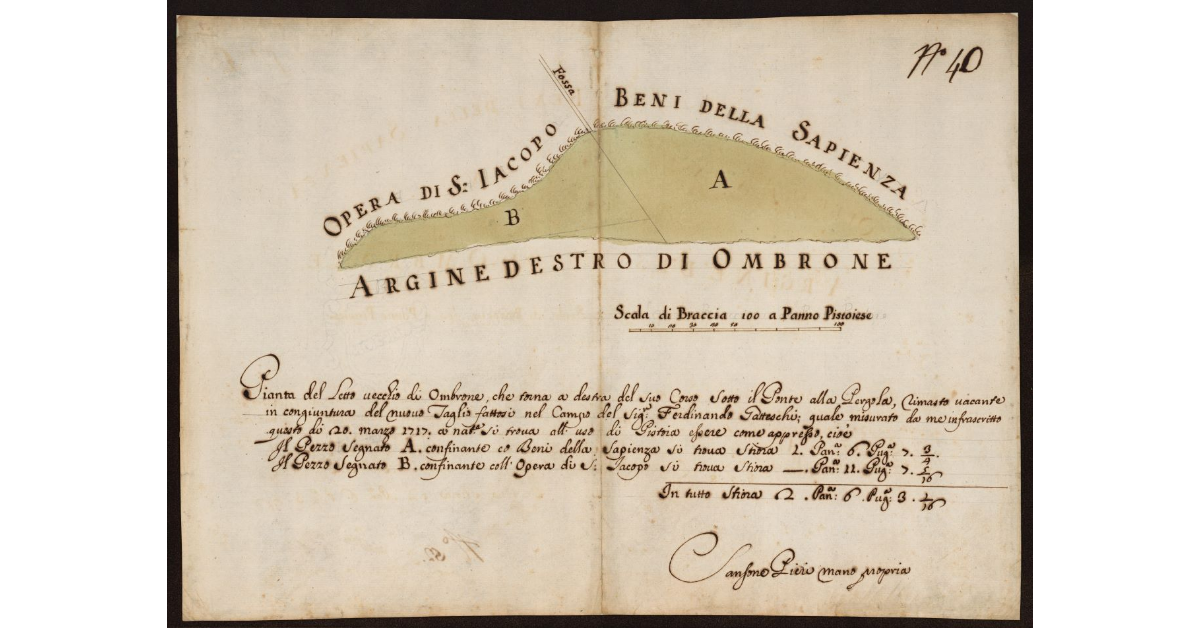 Nº 40
Fossa
BENI DELLA SAPIENZA
OPERA DI S: IACOPO
A
B
ARGINE DESTRO DI OMBRONE
Scala di Braccia 100 a Panno Pistoiese
10 20 30 40 50 100
Pianta del Letto vecchio di Ombrone, che torna a destra del suo Corso sotto il Ponte alla Pergola, rimasto vacante
in congiuntura del nuovo Taglio fattosi nel Campo del Sigr. Ferdinando Gatteschi; quale misurato da me infrascritto
questo dì 20. marzo 1717. a natte. si trova all' uso di Pistoia essere come appresso, cioè
Il Pezzo Segnato A. confinante co Beni della Sapienza si trova Stiora 1. Pana: 6. Puga: 7. 3/4
Il Pezzo Segnato B. confinante coll' Opera di S: Iacopo si trova Stiora —. Pana: 11. Puga: 7. 5/16
In tutto Stiora 2. Pana: 6. Puga: 3. 1/16
Sansone Pieri mano propria